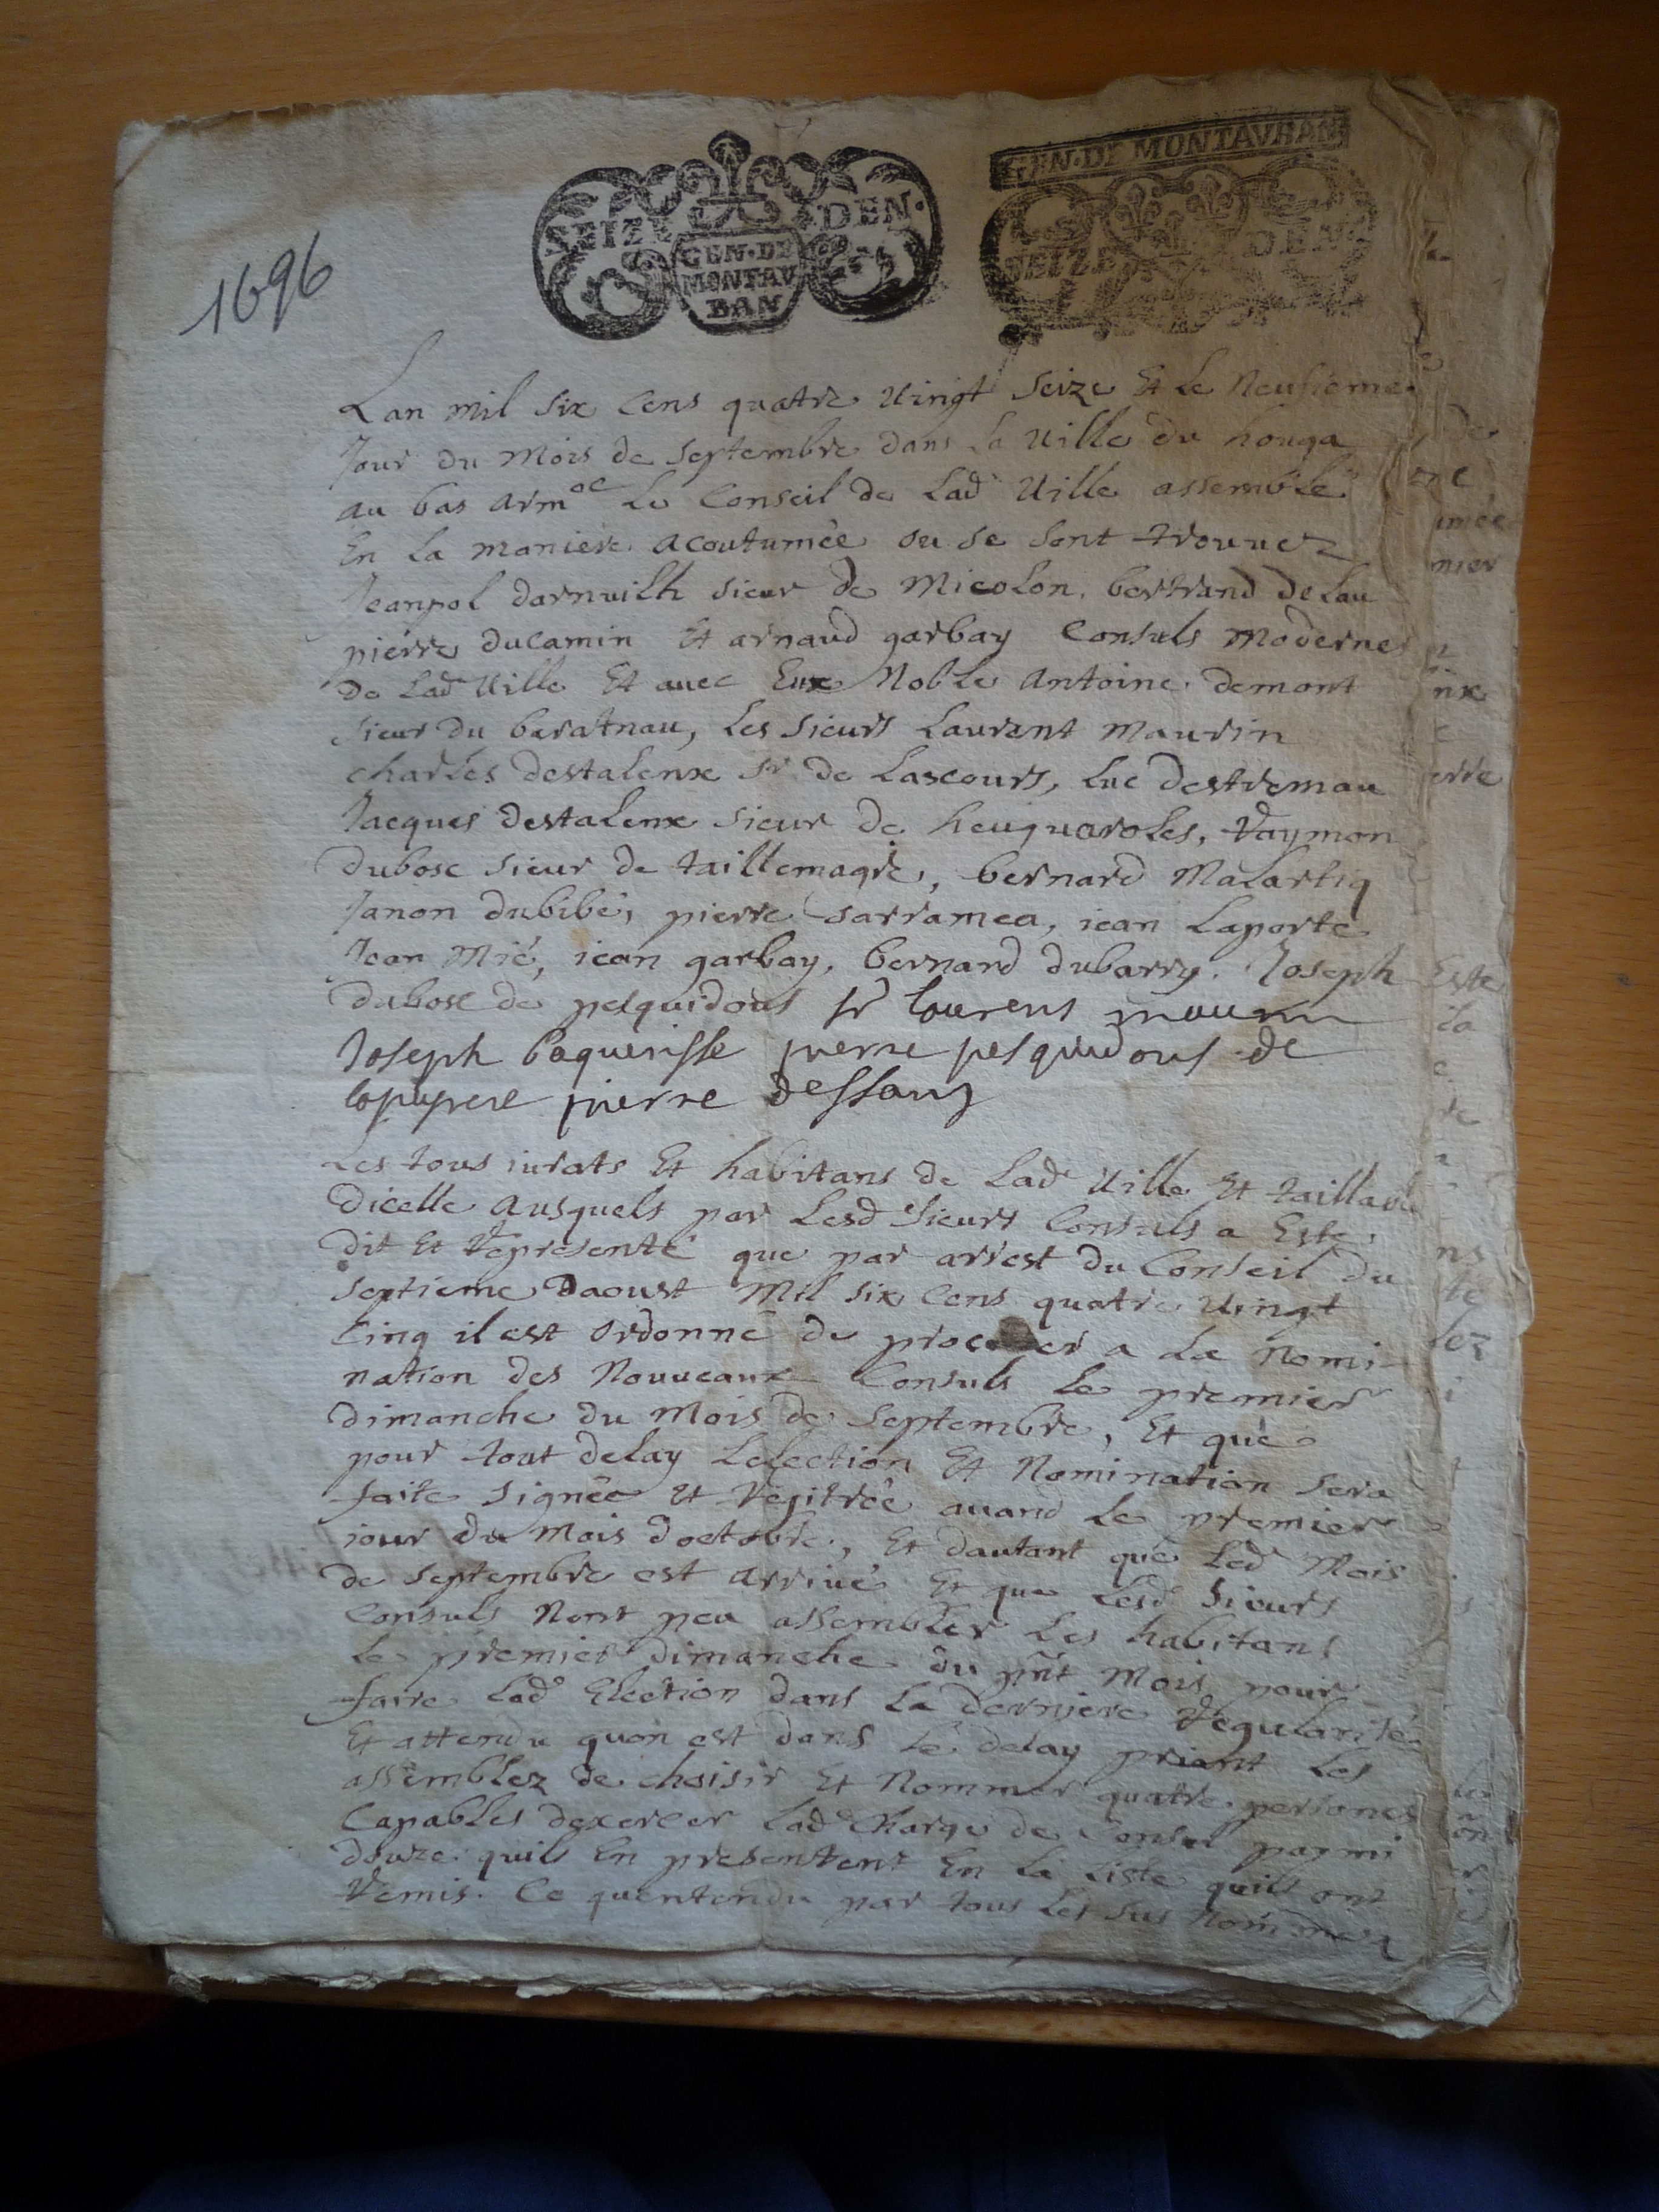 GEN·DE MONTAVBAN
SEIZE DEN·
GEN·DE
MONTAV
BAN
SEIZE DEN·
1696
Lan mil six Cens quatre vingt Seize Et Le Neufieme
Jour du Mois de septembre dans La Ville du houga
au bas armac Le Conseil de Lad Ville assemble
En La maniere acoutumée ou se sont trouuez
Jeanpol darnuilh sieur de Micolon, bertrand Delau
pierre ducamin Et arnaud garbay Consuls Modernes
De Lad Ville Et auec Eux Noble Antoine demont
sieur du beratnau, Les sieurs Laurent maurin
charles destalenx sr de Lascours, Luc destremau
Jacques destalenx sieur de heuguaroles, Raymon
dubosc sieur de taillemagre, bernard Malartiq
Janon dubibé, pierre sarramea, jean Laporte
Jean Mié, jean garbay, bernard dubarry, Joseph
dubosc de pesquidous sr lourens mourin
Joseph baquerisse pierre pesquidous de
pierre dessans
Les tous jurats Et habitans de Lad Ville Et taillable
dicelle ausquels par Lesd sieurs Consuls a Este
dit Et Representé que par arrest du Conseil du
septieme daoust Mil six Cens quatre Vingt
Cinq il est ordonné de proceder a La Nomi-
nation des Nouueaux Consuls Le premier
dimanche du Mois de Septembre, Et que
pour tout delay Lelection Et Nomination sera
faite signée Et Regitrée auand Le premier
jour du Mois doctobre, Et dautant que Led Mois
de septembre est arriué Et que Lesd Sieurs
Consuls Nont peu assembler Les habitans
Le premier dimanche du pnt Mois pour
faire Lad Election dans La derniere Regularité
Et attendu quon est dans Le delay priant Les
assemblez de choisir Et Nommer quatre persones
Capables dexercer Lad Charge de Consul parmi
douze quils En presentent En La Liste quils ont
Remis. Ce quentendu par tous Les sus Nommez